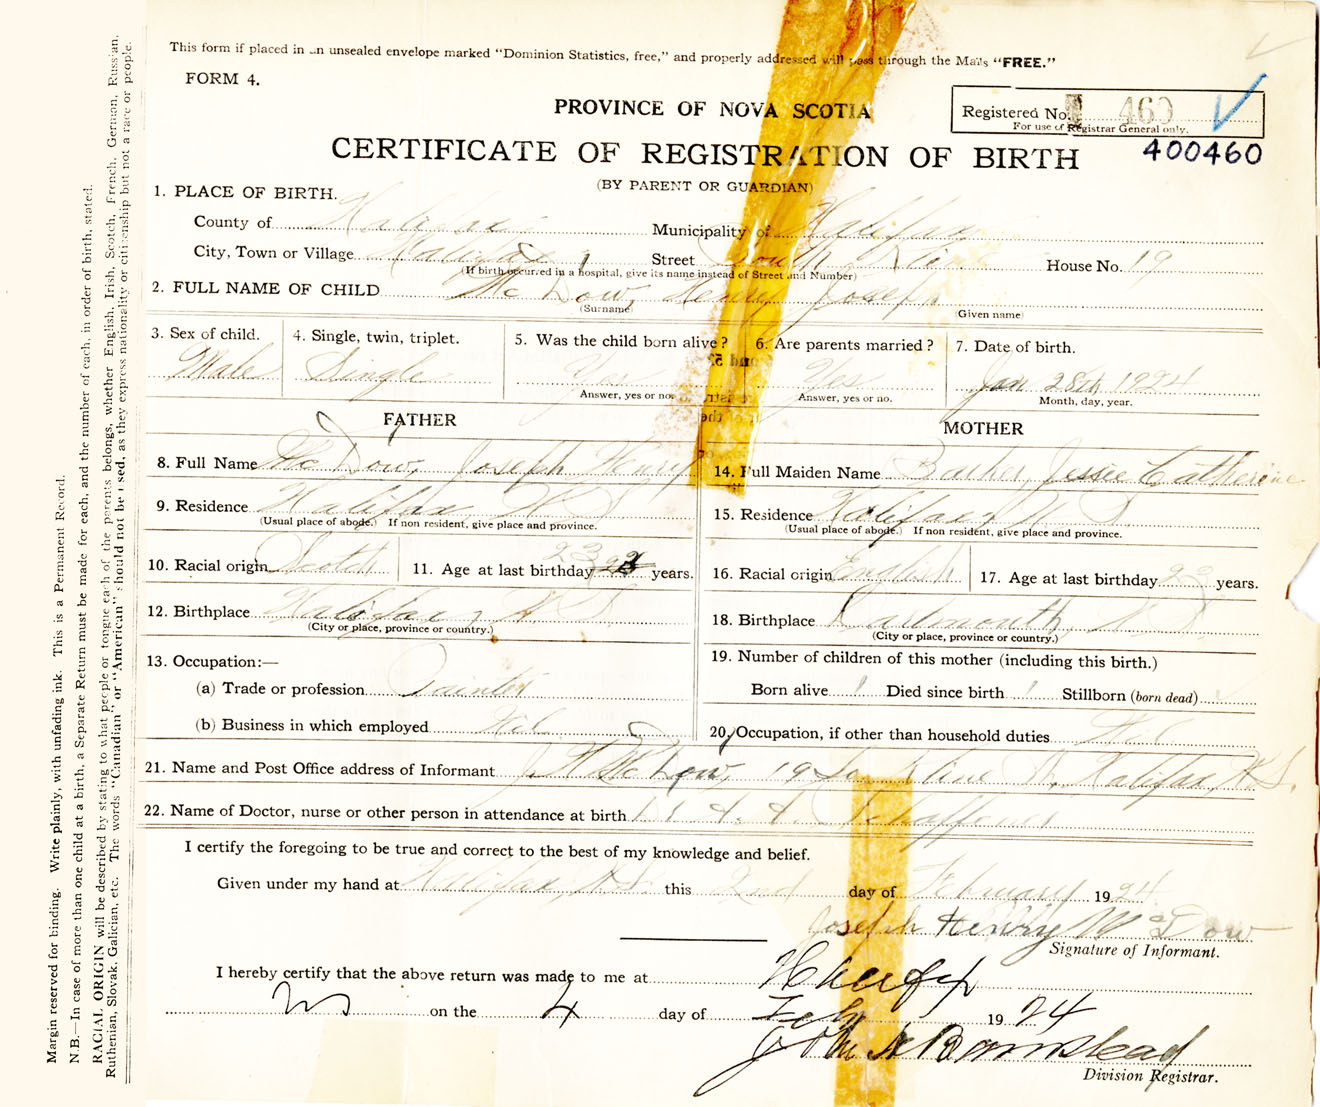 This form if placed in an unsealed envelope marked "Dominion Statistics, free," and properly addressed will pass through the Mails "FREE."
FORM 4.
PROVINCE OF NOVA SCOTIA
Registered No. 460
For use of Registrar General only.
CERTIFICATE OF REGISTRATION OF BIRTH
400460
(BY PARENT OR GUARDIAN)
1. PLACE OF BIRTH.
County of Halifax Municipality of Halifax
City, Town or Village Halifax Street South Kline House No. 19
(If birth occurred in a hospital, give its name instead of Street and Number)
2. FULL NAME OF CHILD McDow, Henry Joseph
(Surname) (Given name)
3. Sex of child. Male
4. Single, twin, triplet. Single
5. Was the child born alive? Yes
Answer, yes or no.
6. Are parents married? Yes
Answer, yes or no.
7. Date of birth. Jan 28th, 1924
Month, day, year.
FATHER
8. Full Name McDow, Joseph Henry
9. Residence Halifax N S
(Usual place of abode.) If non resident, give place and province.
10. Racial origin Scotch
11. Age at last birthday 23 years.
12. Birthplace Halifax, N S
(City or place, province or country.)
13. Occupation:—
(a) Trade or profession Painter
(b) Business in which employed
MOTHER
14. Full Maiden Name Jessie Catherine
15. Residence Halifax N. S.
(Usual place of abode.) If non resident, give place and province.
16. Racial origin English
17. Age at last birthday years.
18. Birthplace Dartmouth, N S.
(City or place, province or country.)
19. Number of children of this mother (including this birth.)
Born alive 1 Died since birth Stillborn (born dead)
20. Occupation, if other than household duties
21. Name and Post Office address of Informant McDow, 19 Kline St, Halifax, N.S.
22. Name of Doctor, nurse or other person in attendance at birth
I certify the foregoing to be true and correct to the best of my knowledge and belief.
Given under my hand at Halifax, N.S. this 2nd day of February 1924
Joseph Henry McDow
Signature of Informant.
I hereby certify that the above return was made to me at Halifax
NS on the 4 day of Feby 1924
Division Registrar.
Margin reserved for binding. Write plainly, with unfading ink. This is a Permanent Record.
N.B.—In case of more than one child at a birth, a Separate Return must be made for each, and the number of each, in order of birth, stated.
RACIAL ORIGIN will be described by stating to what people or tongue each of the parents belongs, whether English, Irish, Scotch, French, German, Russian,
Ruthenian, Slovak, Galician, etc. The words "Canadian" or "American" should not be used, as they express nationality or citizenship but not a race or people.